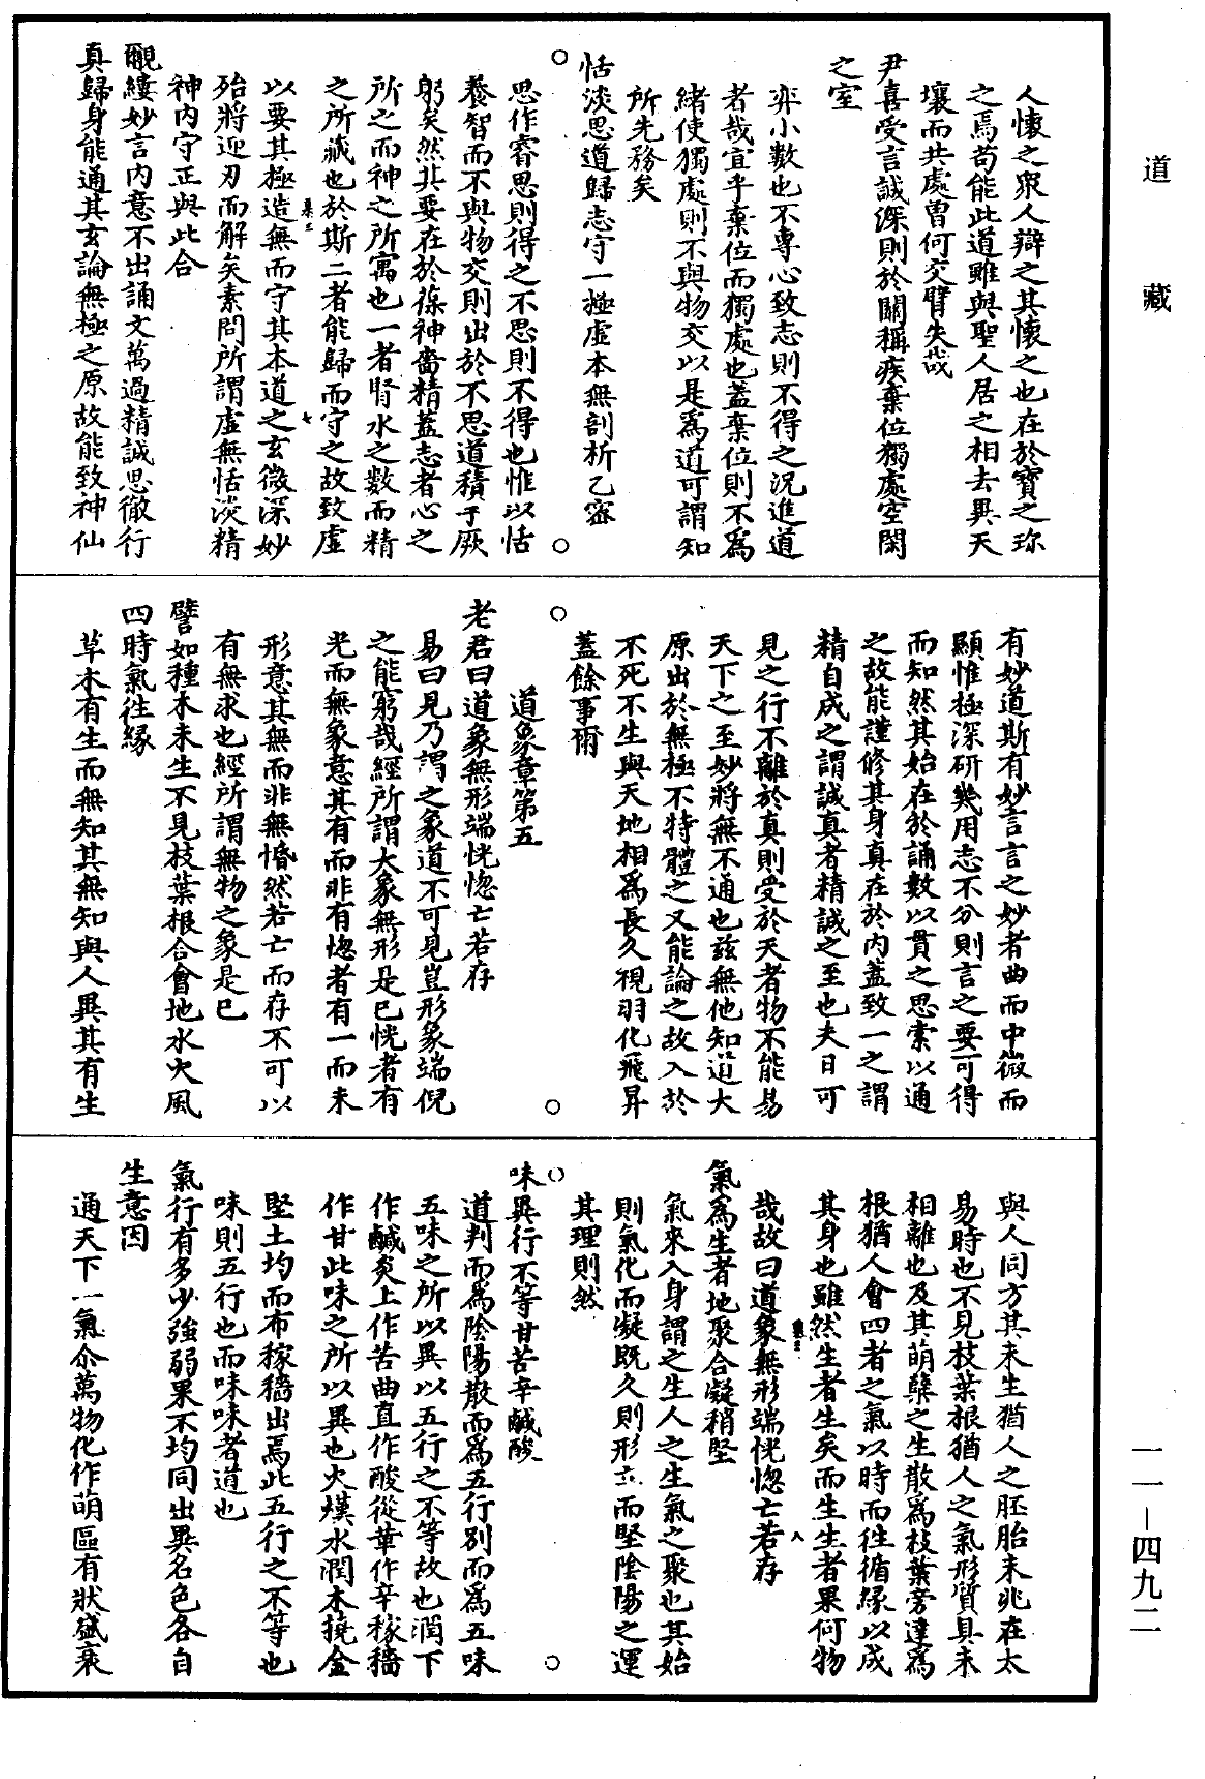 道藏
人懷之衆人辯之其懷之也在於寶之珎
之焉苟能此道雖與聖人居之相去異天
壤而共處曽何交臂失哉
尹喜受言誠深則於關稱疾棄位獨處空閑
之室
弈小數也不專心致志則不得之況進道
者哉宜乎棄位而獨處也蓋棄位則不爲
緒使獨處則不與物交以是爲道可謂知
所先務矣
恬淡思道歸志守一極虛本無剖析乙密
思作睿思則得之不思則不得也惟以恬
養智而不與物交則出於不思道積于厥
躬矣然其要在於葆神嗇精蓋志者心之
所之而神之所寓也一者腎水之數而精
之所藏也於斯二者能歸而守之故致虛
以要其極造無而守其本道之玄微深妙
殆將迎刃而解矣素問所謂虛無恬淡精
神内守正與此合
覼縷妙言内意不出誦文萬過精誠思徹行
真歸身能通其玄論無極之原故能致神仙
有妙道斯有妙言言之妙者曲而中微而
顯惟極深研幾用志不分則言之要可得
而知然其始在於誦數以貫之思索以通
之故能謹修其身真在於内蓋致一之謂
精自成之謂誠真者精誠之至也夫日可
見之行不離於真則受於天者物不能易
天下之至妙將無不通也兹無他知道大
原出於無極不特體之又能論之故入於
不死不生與天地相爲長久視羽化飛昇
蓋餘事爾
道象章第五
老君曰道象無形端恍惚亡若存
易曰見乃謂之象道不可見豈形象端倪
之能窮哉經所謂大象無形是已恍者有
光而無象意其有而非有惚者有一而未
形意其無而非無惛然若亡而存不可以
有無求也經所謂無物之象是已
譬如種木未生不見枝葉根合會地水火風
四時氣往緣
草木有生而無知其無知與人異其有生
與人同方其未生猶人之胚胎未兆在太
易時也不見枝葉根猶人之氣形質具未
相離也及其萌蘖之生散爲枝葉旁達爲
根猶人會四者之氣以時而往循緣以成
其身也雖然生者生矣而生生者果何物
哉故曰道象無形端恍惚亡若存
氣爲生者地聚合凝稍堅
氣來入身謂之生人之生氣之聚也其始
則氣化而凝既久則形立而堅陰陽之運
其理則然
味異行不等甘苦辛鹹酸
道判而爲陰陽散而爲五行別而爲五味
五味之所以異以五行之不等故也潤下
作鹹炎上作苦曲直作酸從革作辛稼穡
作甘此味之所以異也火熯水潤木撓金
堅土均而布稼穡出焉此五行之不等也
味則五行也而味味者道也
氣行有多少強弱果不均同出異名色各自
生意因
通天下一氣尒萬物化作萌區有狀盛衰
一一－四九二